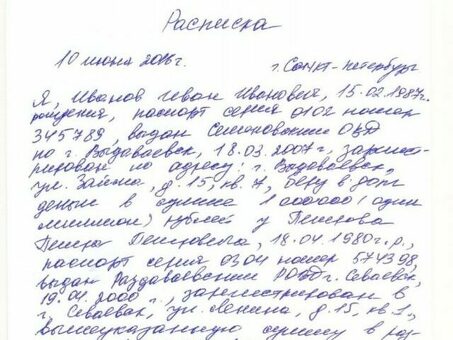 Расписка
10 июня 2016г. г. Санкт-Петербург
Я, Иванов Иван Иванович, 15.02.1987г.
рождения, паспорт серия 0102 номер
345789, выдан Симоновским ОВД
по г. Выдаваевск, 18.03.2007г., зареги-
рирован по адресу: г. Выдаваевск,
ул. д. 15, кв. 7, беру в долг
деньги в сумме 1 000000 (один
миллион) рублей у Петрова
Петра Петровича, 18.04.1980г.р.,
паспорт серия 0304 номер 574398,
выдан Раздаваевским РОВД г. Севаевск,
19.04.2000 г., зарегистрирован в
г. Севаевск, ул. Ленина, д. 15, кв. 1,
вышеуказанную сумму в